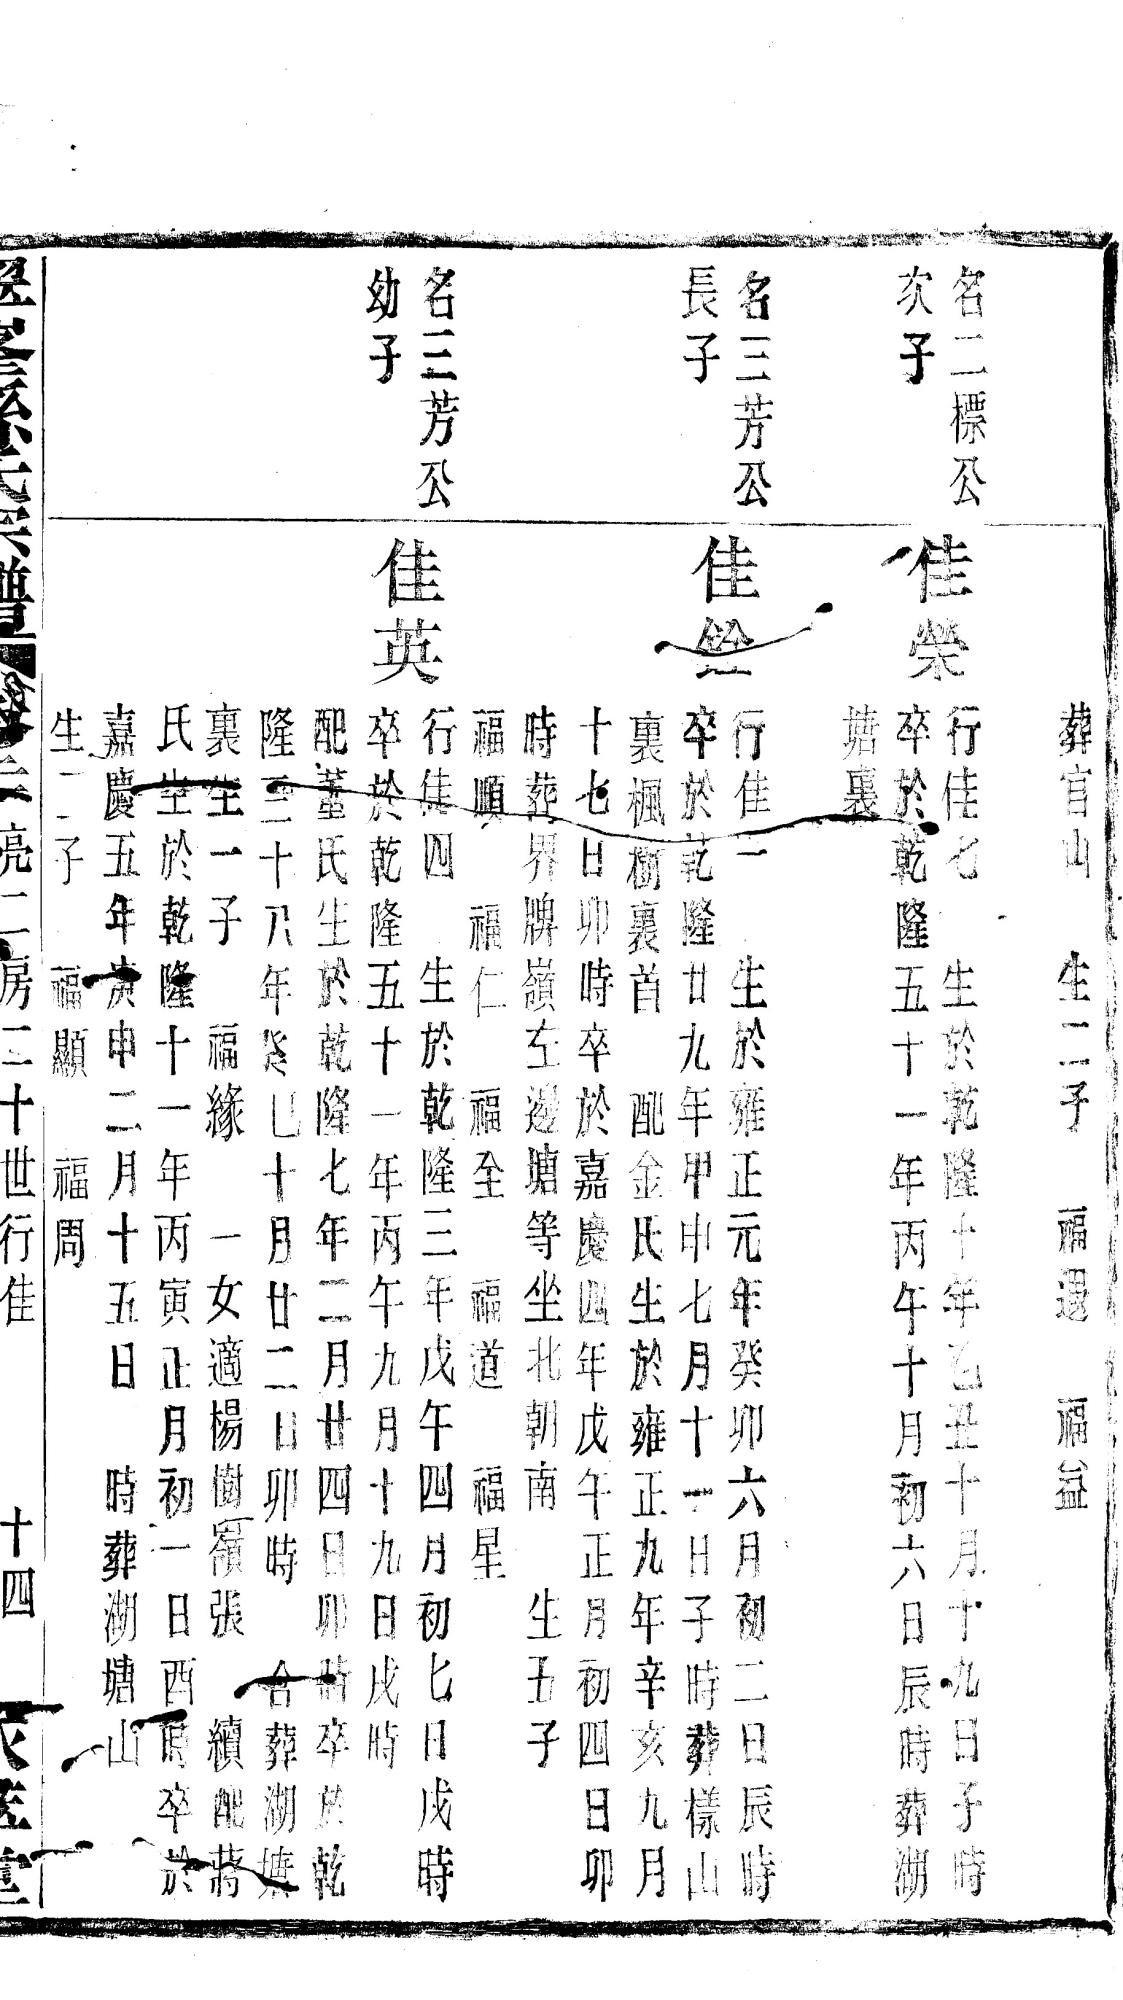 葬官山　生二子　福遐　福益
名二標公
次子
佳榮
行佳七　生於乾隆十年乙丑十月十九日子時
卒於乾隆五十一年丙午十月初六日辰時葬湖
塘裏
名三芳公
長子
佳銓
行佳一　生於雍正元年癸卯六月初二日辰時
卒於乾隆廿九年甲申七月十一日子時葬樣山
裏楓樹裏首　配金氏生於雍正九年辛亥九月
十七日卯時卒於嘉慶四年戊午正月初四日卯
時葬界牌嶺左邊塘等坐北朝南　生五子
福順　福仁　福至　福道　福星
名三芳公
幼子
佳英
行佳四　生於乾隆三年戊午四月初七日戌時
卒於乾隆五十一年丙午九月十九日戌時
配董氏生於乾隆七年二月廿四日卯時卒於乾
隆三十八年癸巳十月廿二日卯時　合葬湖塘
裏生一子　福緣　一女適楊樹嶺張　續配蔣
氏生於乾隆十一年丙寅正月初一日酉時卒於
嘉慶五年庚申二月十五日　時葬湖塘山
生二子　福顯　福周
氏宗譜　卷二　亮二房二十世行佳　十四